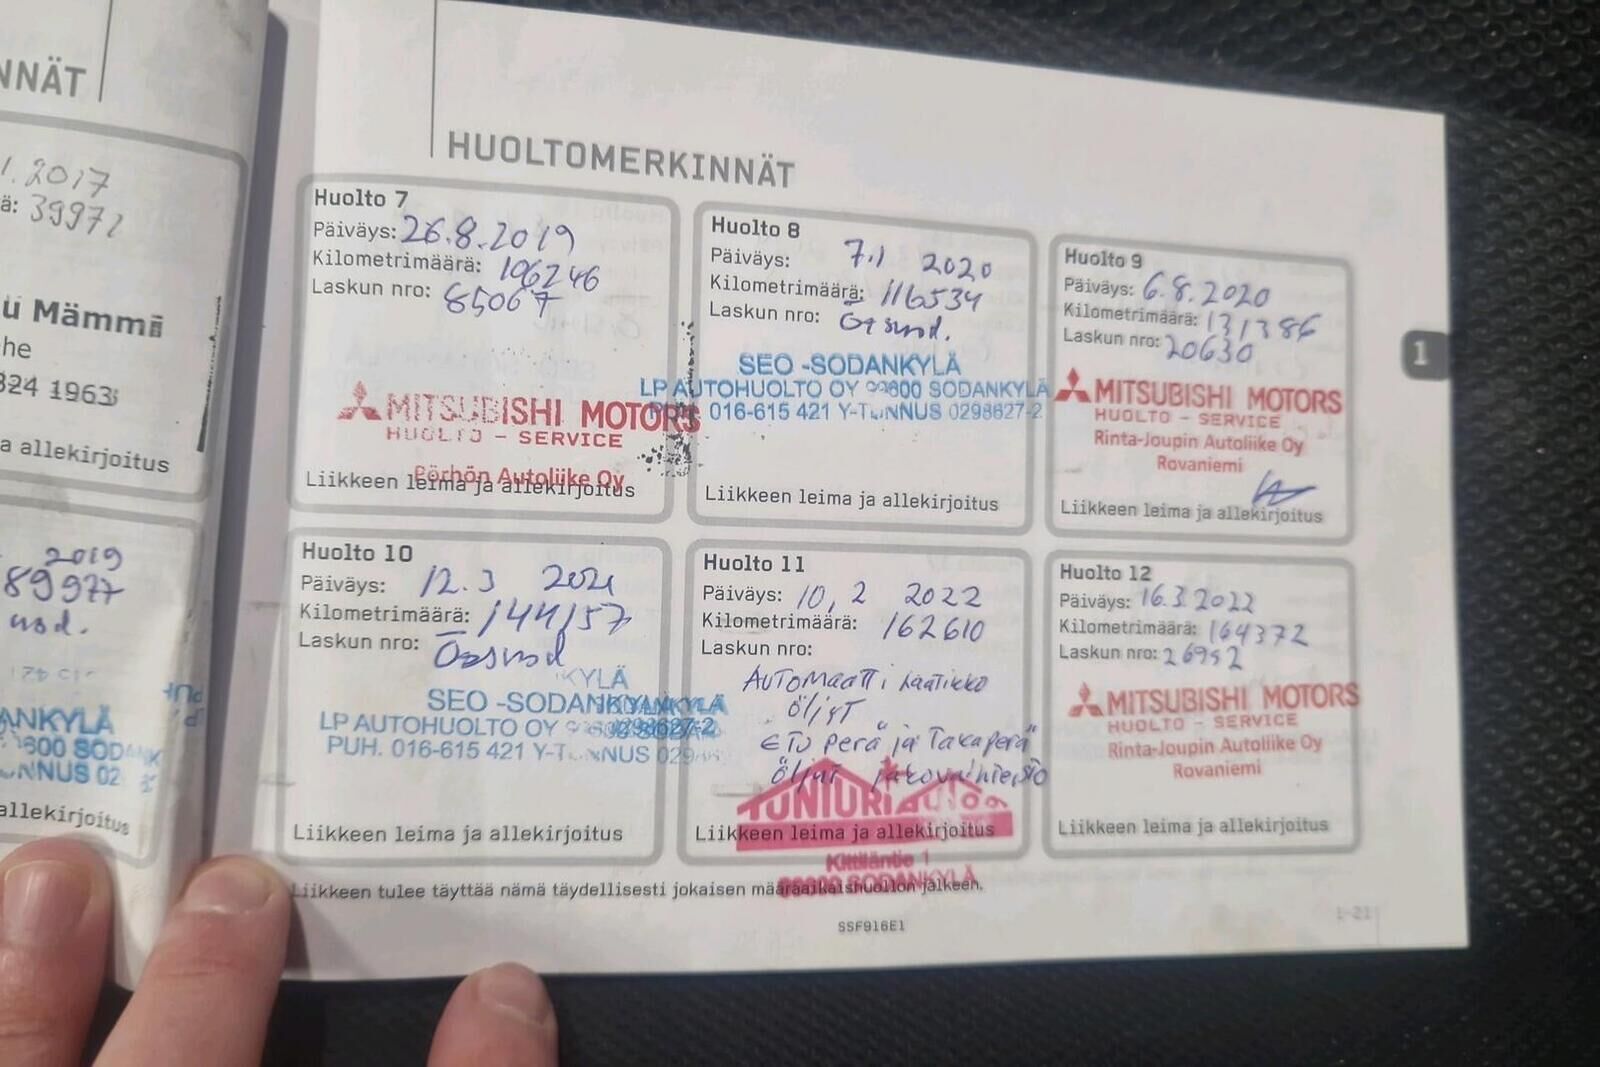 NNÄT
1.2017
ä: 39972
u Mämmi
he
324 1963
a allekirjoitus
2019
89977
ANKYLÄ
600 SODANK
NNUS 02
allekirjoitus
HUOLTOMERKINNÄT
Huolto 7
Päiväys: 26.8.2019
Kilometrimäärä: 106246
Laskun nro: 85067
MITSUBISHI MOTORS
HUOLTO - SERVICE
Pörhön Autoliike Oy
Liikkeen leima ja allekirjoitus
Huolto 8
Päiväys: 7.1 2020
Kilometrimäärä: 116534
Laskun nro:
SEO -SODANKYLÄ
LP AUTOHUOLTO OY 99600 SODANKYLÄ
016-615 421 Y-TUNNUS 0298627-2
Liikkeen leima ja allekirjoitus
Huolto 9
Päiväys: 6.8.2020
Kilometrimäärä: 131386
Laskun nro: 20630
MITSUBISHI MOTORS
HUOLTO - SERVICE
Rinta-Joupin Autoliike Oy
Rovaniemi
Liikkeen leima ja allekirjoitus
1
Huolto 10
Päiväys: 12.3 2021
Kilometrimäärä: 144157
Laskun nro:
KYLÄ
SEO -SODANKYLÄ
LP AUTOHUOLTO OY
PUH. 016-615 421 Y-TUNNUS
Liikkeen leima ja allekirjoitus
Huolto 11
Päiväys: 10,2 2022
Kilometrimäärä: 162610
Laskun nro:
AUTOMAATTI LAATIKKO
ÖLJYT
ETU PERÄ JA TAKAPERÄ
ÖLJYT
TUNTURIAutoa
Liikkeen leima ja allekirjoitus
Kittiläntie 1
99600 SODANKYLÄ
Huolto 12
Päiväys: 16.3.2022
Kilometrimäärä: 164372
Laskun nro: 26952
MITSUBISHI MOTORS
HUOLTO - SERVICE
Rinta-Joupin Autoliike Oy
Rovaniemi
Liikkeen leima ja allekirjoitus
Liikkeen tulee täyttää nämä täydellisesti jokaisen määräaikaishuollon jälkeen.
SSF916E1
1-21